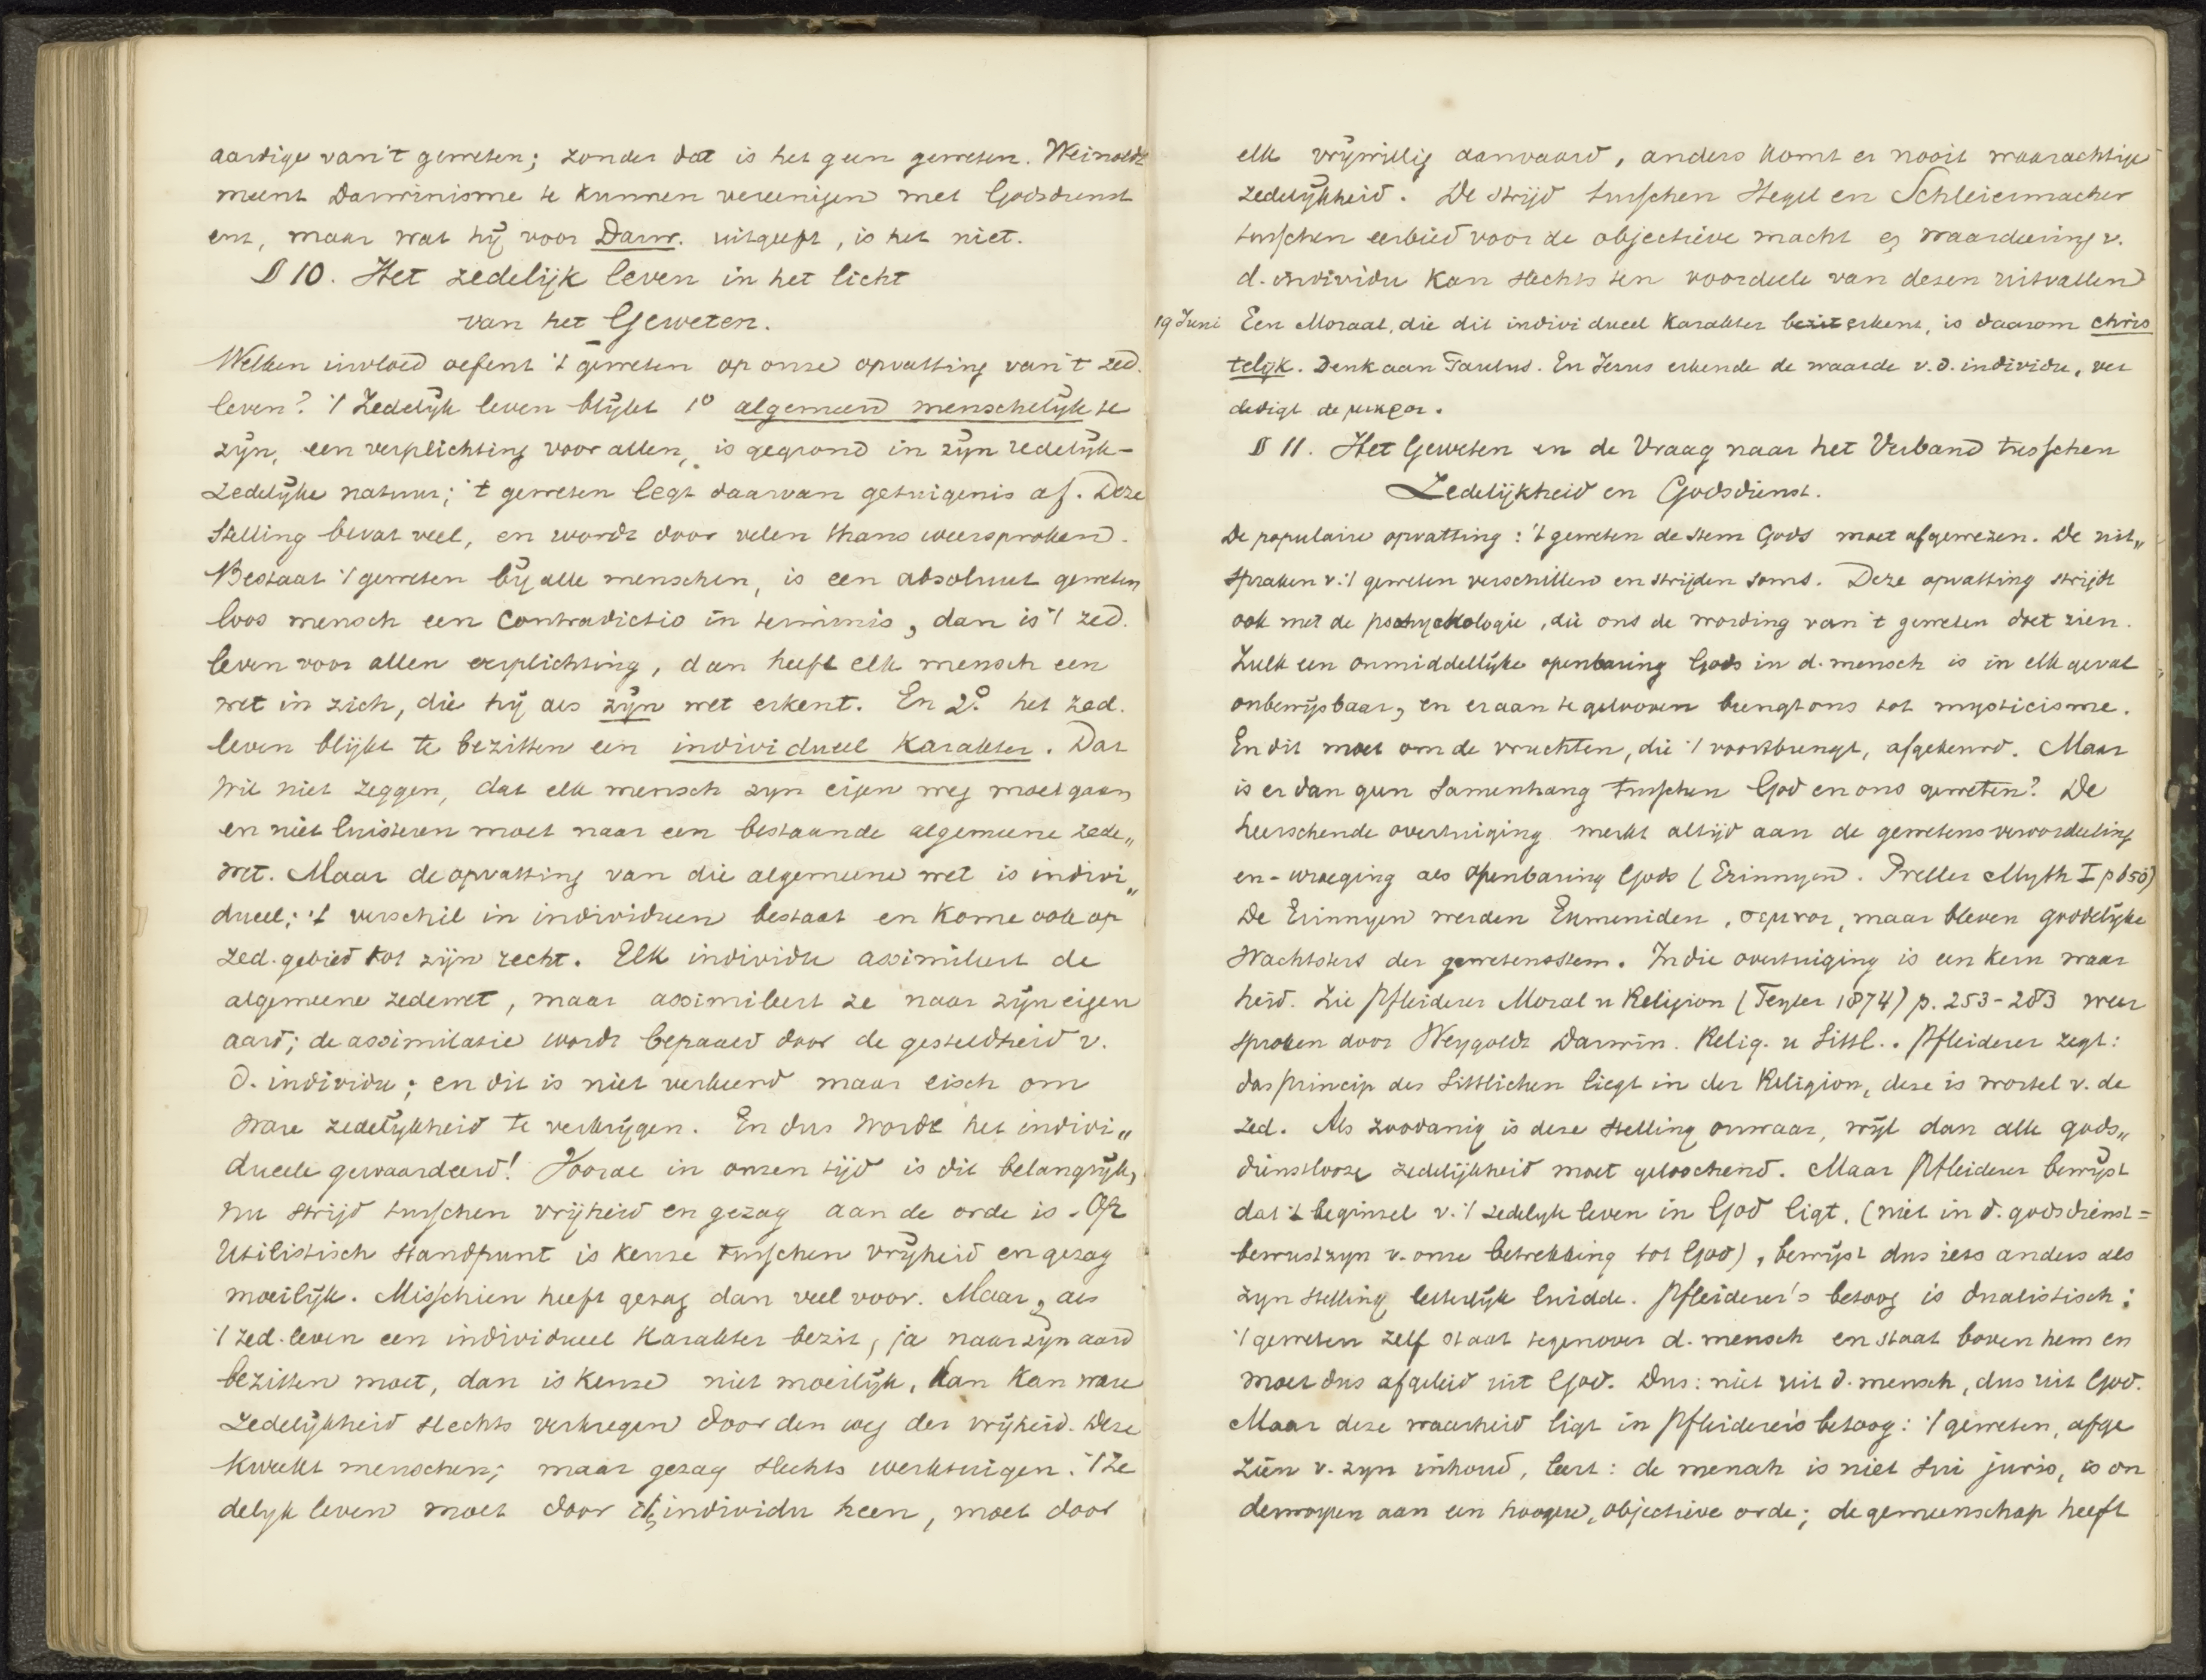 aardige van 't geweten; zonder dat is het geen geweten. Weinoldt
meent Darwinisme te kunnen vereenigen met Godsdienst
enz, maar wat hij voor Darw. uitgeeft, is het niet.
§ 10. Het zedelijk leven in het licht
van het Geweten.
Welken invloed oefent 't geweten op onze opvatting van 't zed.
leven? 't Zedelijk leven blijkt 1° algemeen menschelijk te
zijn, een verplichting voor allen, is gegrond in zijn redelijk-
zedelijke natuur; 't geweten legt daarvan getuigenis af. Deze
stelling bevat veel, en wordt door velen thans weersproken.
Bestaat 't geweten bij alle menschen, is een absoluut geweten
loos mensch een contradictio in terminis, dan is 't zed.
leven voor allen verplichting, dan heeft elk mensch een
wet in zich, die hij als zijn wet erkent. En 2° het zed.
leven blijkt te bezitten een individueel karakter. Dat
wil niet zeggen, dat elk mensch zijn eigen weg moet gaan,
en niet luisteren moet naar een bestaande algemeene zede„
wet. Maar de opvatting van die algemeene wet is indivi„
dueel; 't verschil in individuen bestaat en kome ook op
zed. gebied tot zijn recht. Elk individu assimileert de
algemeene zedewet, maar assimileert ze naar zijn eigen
aard; de assimilatie wordt bepaald door de gesteldheid v.
d. individu; en dit is niet verkeerd maar eisch om
ware zedelijkheid te verkrijgen. En dus wordt het indivi„
dueele gewaardeerd! Vooral in onzen tijd is dit belangrijk,
nu strijd tusschen vrijheid en gezag aan de orde is. Op
Utilistisch standpunt is keuze tusschen vrijheid en gezag
moeilijk. Misschien heeft gezag dan veel voor. Maar, als
't zed. leven een individueel karakter bezit, ja naar zijn aard
bezitten moet, dan is keuze niet moeilijk, dan kan ware
zedelijkheid slechts verkregen door den weg der vrijheid. Deze
kweekt menschen; maar gezag slechts werktuigen. 't Ze
delijk leven moet door 't individu heen, moet door
elk vrijwillig aanvaard, anders komt er nooit waarachtige
zedelijkheid. De strijd tusschen Hegel en Schleiermacher
tusschen eerbied voor de objectieve macht en waardeering v.
d. individu kan slechts ten voordeele van dezen uitvallen
19 Juni Een Moraal, die dit individueel karakter bezit erkent, is daarom chris
telijk. Denk aan Paulus. En Jezus erkende de waarde v. d. individu, ver
dedigt de μικροι.
§ 11. Het Geweten en de Vraag naar het Verband tusschen
Zedelijkheid en Godsdienst.
De populaire opvatting: 't geweten de stem Gods moet afgewezen. De uit„
spraken v. 't geweten verschillen en strijden soms. Deze opvatting strijdt
ook met de psychologie, die ons de wording van 't geweten doet zien.
Zulk een onmiddellijke openbaring Gods in d. mensch is in elk geval
onbewijsbaar, en eraan te gelooven brengt ons tot mysticisme.
En dit moet om de vruchten, die 't voortbrengt, afgekeurd. Maar
is er dan geen samenhang tusschen God en ons geweten? De
heerschende overtuiging merkt altijd aan de gewetensveroordeeling
en-wroeging als openbaring Gods (Erinnyen. Preller Myth I p 650)
De Erinnyen werden Eumeniden, σεμναι, maar bleven goddelijke
wachtsters der gewetensstem. In die overtuiging is een kern waar
heid. Zie Pfleiderer Moral u Religion (Teyler 1874) p. 253-283 weer
sproken door Weygoldt Darwin. Relig. u Sittl.. Pfleiderer zegt:
das princip des Sittlichen liegt in der Religion, deze is wortel v. de
zed. Als zoodanig is deze stelling onwaar, wijl dan alle gods„
dienstlooze zedelijkheid moet geloochend. Maar Pfleiderer bewijst
dat 't beginsel v. 't zedelijk leven in God ligt, (niet in d. godsdienst=
bewustzijn v. onze betrekking tot God), bewijst dus iets anders als
zijn stelling letterlijk luidde. Pfleiderer's betoog is dualistisch:
't geweten zelf staat tegenover d. mensch en staat boven hem en
moet dus afgeleid uit God. Dus: niet uit d. mensch, dus uit God.
Maar deze waarheid ligt in Pfleiderer's betoog: 't geweten, afge
zien v. zijn inhoud, leert: de mensch is niet sui juris, is on
derworpen aan een hoogere, objectieve orde; de gemeenschap heeft